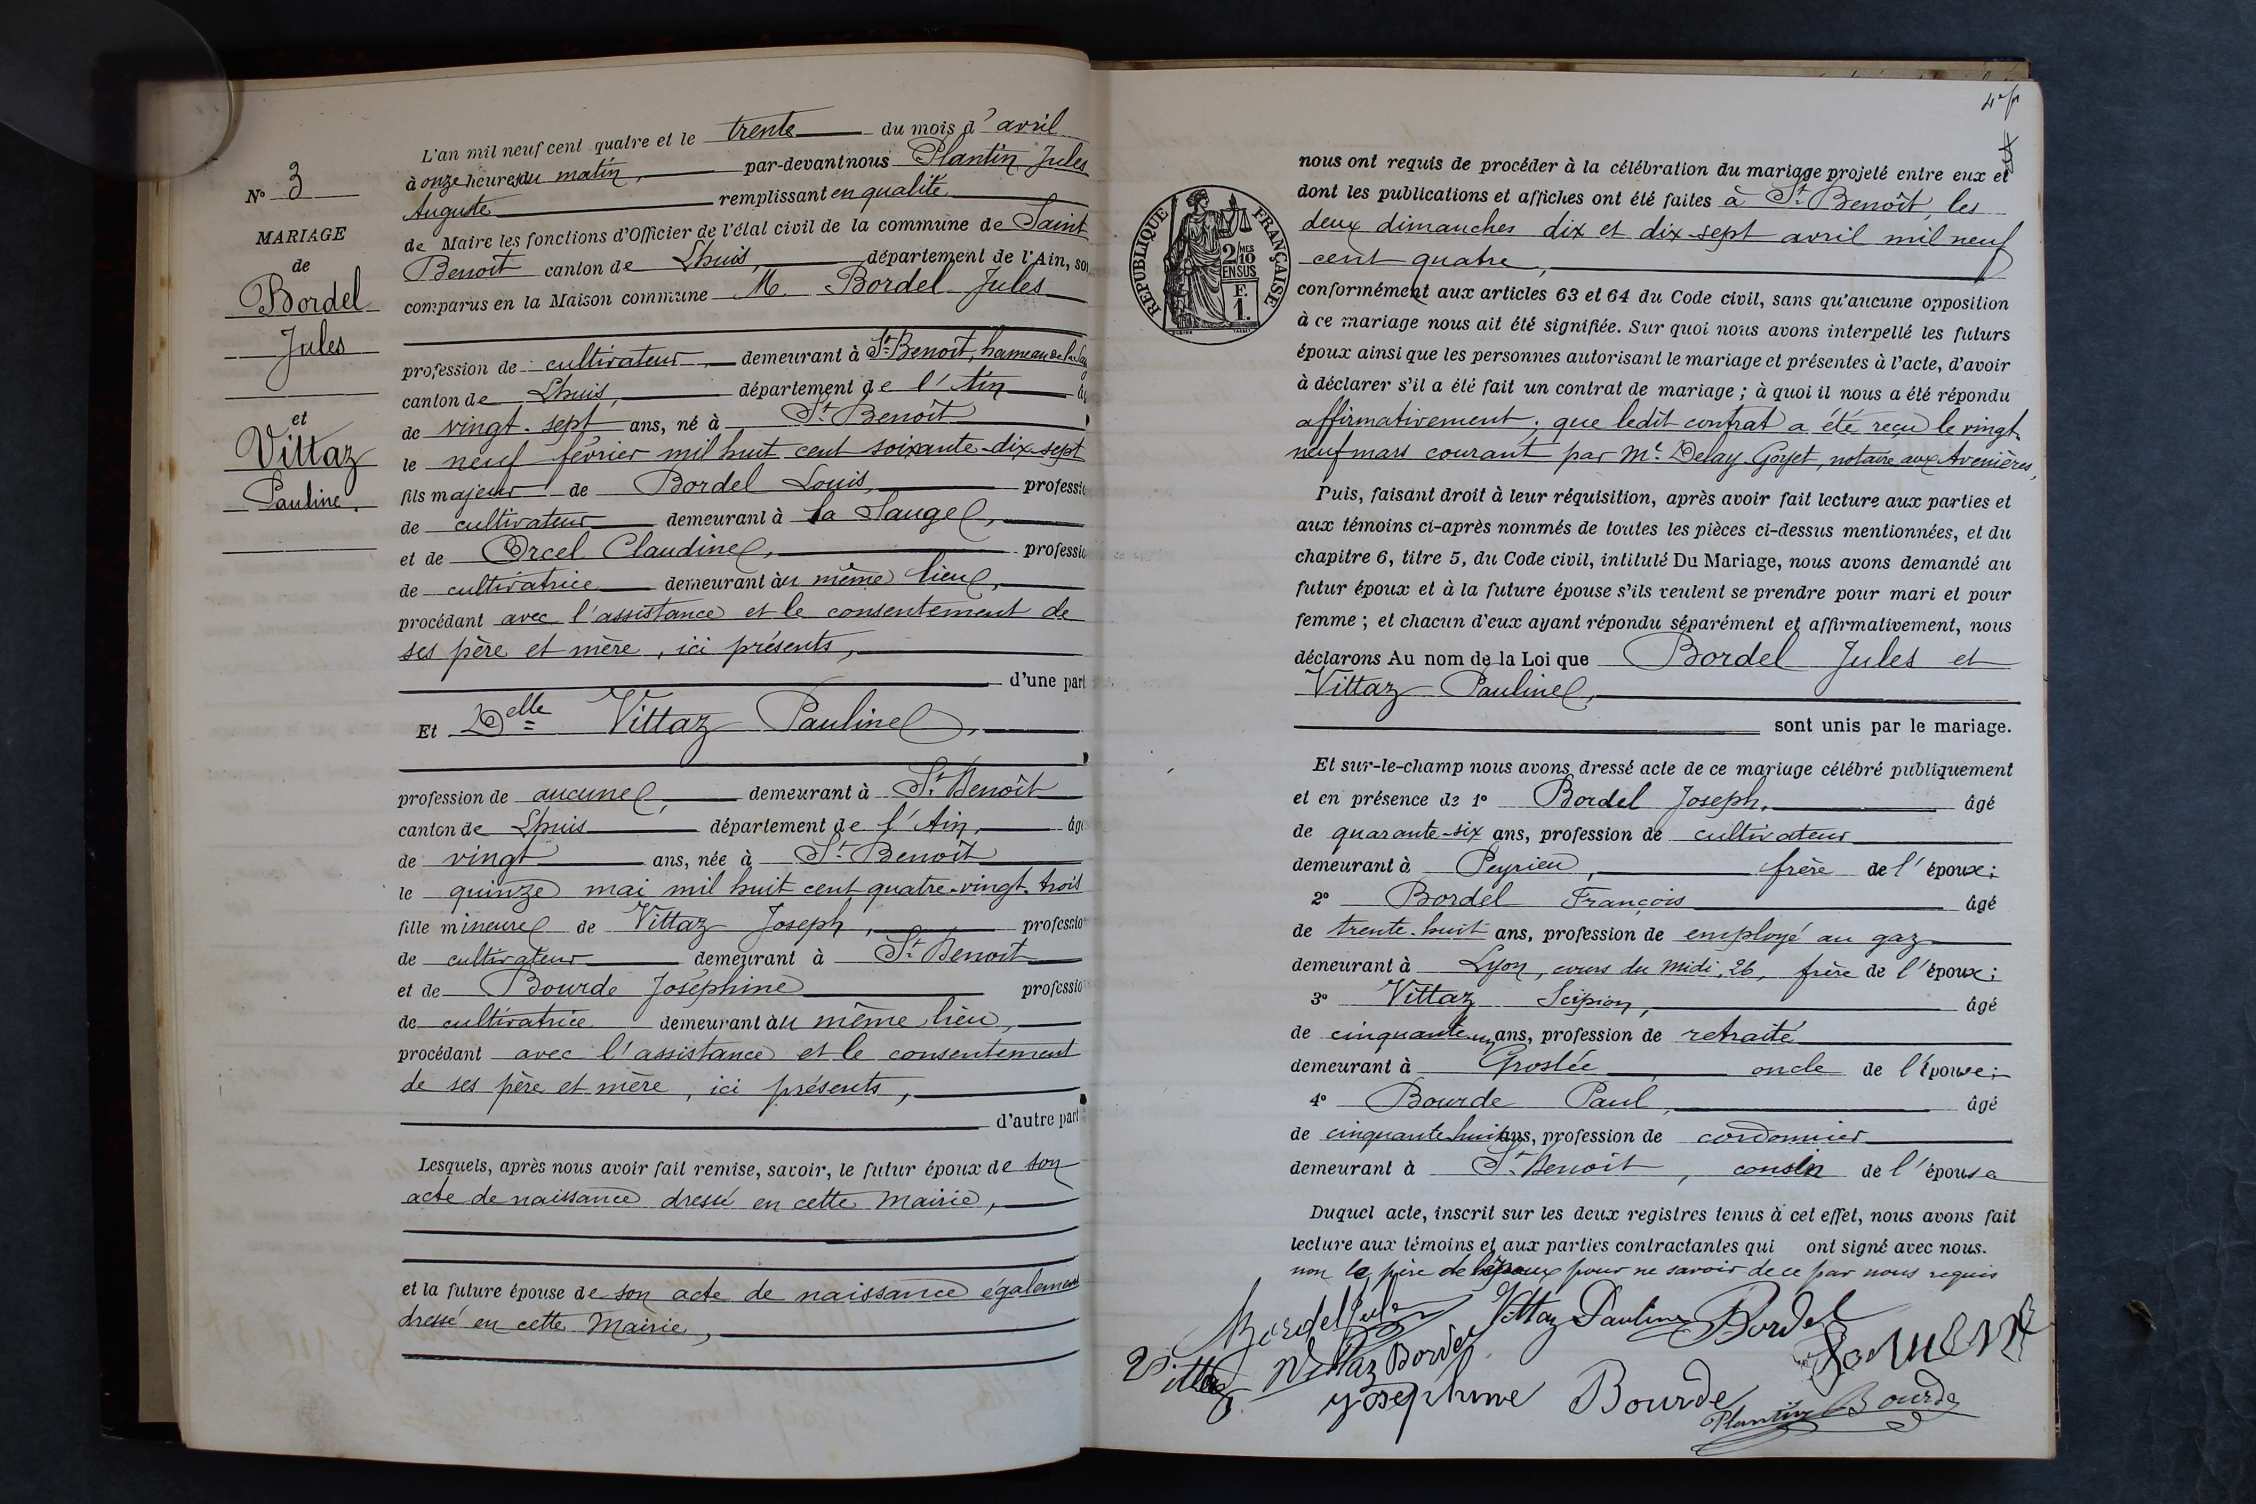 N° 3
MARIAGE
de
Bordel
Jules
et
Vittaz
Pauline.
L'an mil neuf cent quatre et le trente du mois d'avril
à onze heures du matin, par-devant nous Plantin Jules
Auguste remplissant en qualité
de Maire les fonctions d'Officier de l'état civil de la commune de Saint
Benoît canton de Lhuis, département de l'Ain, so
comparus en la Maison commune M. Bordel Jules
profession de cultivateur demeurant à St. Benoît, hameau de la
canton de Lhuis, département de l'Ain
de vingt-sept ans, né à St. Benoît
le neuf février mil huit cent soixante-dix-sept
fils majeur de Bordel Louis, professi
de cultivateur demeurant à la Sauge,
et de Orcel Claudine, professi
de cultivatrice demeurant au même lieu,
procédant avec l'assistance et le consentement de
ses père et mère, ici présents,
d'une part
Et Delle Vittaz Pauline,
profession de aucune, demeurant à St. Benoît
canton de Lhuis département de l'Ain, âg
de vingt ans, née à St. Benoît
le quinze mai mil huit cent quatre-vingt-trois
fille mineure de Vittaz Joseph, professio
de cultivateur demeurant à St. Benoît
et de Bourde Joséphine professio
de cultivatrice demeurant au même lieu,
procédant avec l'assistance et le consentement
de ses père et mère, ici présents,
d'autre part
Lesquels, après nous avoir fait remise, savoir, le futur époux de son
acte de naissance dressé en cette Mairie,
et la future épouse de son acte de naissance également
dressé en cette Mairie,
nous ont requis de procéder à la célébration du mariage projeté entre eux et
dont les publications et affiches ont été faites à St. Benoît, les
deux dimanches dix et dix-sept avril mil neuf
cent quatre,
RÉPUBLIQUE FRANÇAISE
2 MES
10
EN SUS
F.
1.
conformément aux articles 63 et 64 du Code civil, sans qu'aucune opposition
à ce mariage nous ait été signifiée. Sur quoi nous avons interpellé les futurs
époux ainsi que les personnes autorisant le mariage et présentes à l'acte, d'avoir
à déclarer s'il a été fait un contrat de mariage ; à quoi il nous a été répondu
affirmativement; que ledit contrat a été reçu le vingt-
neuf mars courant par Me. Delay-Goyet, notaire aux Avenières,
Puis, faisant droit à leur réquisition, après avoir fait lecture aux parties et
aux témoins ci-après nommés de toutes les pièces ci-dessus mentionnées, et du
chapitre 6, titre 5, du Code civil, intitulé Du Mariage, nous avons demandé au
futur époux et à la future épouse s'ils veulent se prendre pour mari et pour
femme ; et chacun d'eux ayant répondu séparément et affirmativement, nous
déclarons Au nom de la Loi que Bordel Jules et
Vittaz Pauline,
sont unis par le mariage.
Et sur-le-champ nous avons dressé acte de ce mariage célébré publiquement
et en présence de 1° Bordel Joseph, âgé
de quarante-six ans, profession de cultivateur
demeurant à Peyrieu, frère de l'époux;
2° Bordel François âgé
de trente-huit ans, profession de employé au gaz
demeurant à Lyon, cours du Midi, 26, frère de l'époux;
3° Vittaz Scipion, âgé
de cinquante un ans, profession de retraité
demeurant à Groslée, oncle de l'épouse;
4° Bourde Paul, âgé
de cinquante-huit ans, profession de cordonnier
demeurant à St. Benoît, cousin de l'épouse
Duquel acte, inscrit sur les deux registres tenus à cet effet, nous avons fait
lecture aux témoins et aux parties contractantes qui ont signé avec nous.
non le père de l'époux pour ne savoir de ce par nous requis
Bordel Jules Vittaz Pauline Bordel
Vittaz Vittaz Bordel
Joséphine Bourde Bourde
Plantin